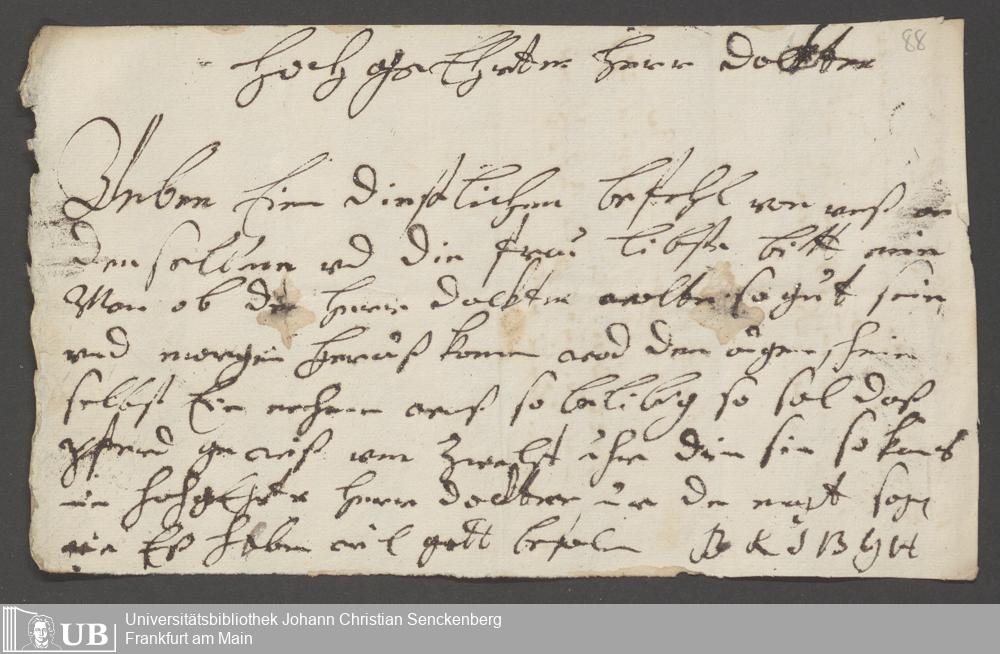 88
hoch geEhrter herr dockter
Neben Eim dinstlichen befehl von unß an
den selben und die frau libste bitt mein
Man ob der herr dockter wolte so gut sein
und morgen herauß komen und den augenschein
selbst Ein nehmen waß so belibig so sol daß
pferd gewiß um zwelf uhr din sein so kans
hochgeEhrter herr dockter nur de magt sagen
wie Eß haben wil gott befolen
UB
Universitätsbibliothek Johann Christian Senckenberg
Frankfurt am Main